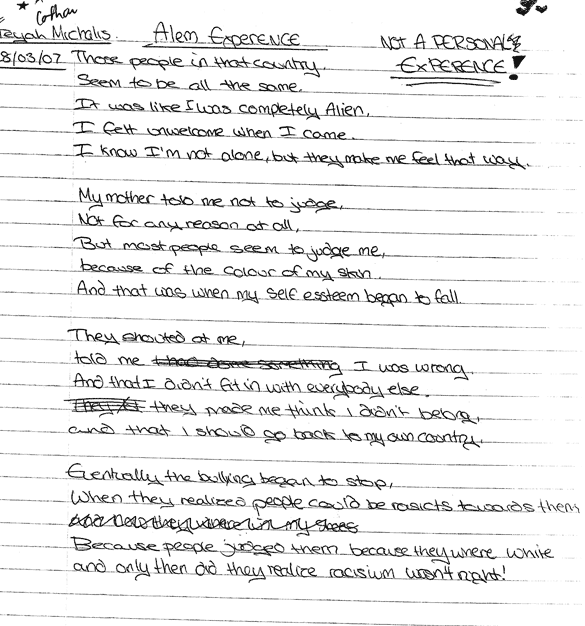 Cothan
eeyah Michalis. Alem Experence NOT A PERSONAL
8/03/07 EXPERENCE!
Those people in that country.
Seem to be all the same.
It was like I was completely Alien,
I felt unwelcome when I came.
I know I'm not alone, but they make me feel that way.
My mother told me not to judge,
Not for any reason at all,
But most people seem to judge me,
because of the colour of my skin.
And that was when my self essteem began to fall.
They shouted at me,
told me I was wrong.
And that I didn't fit in with everybody else.
they made me think I didn't belong,
and that I should go back to my own country.
Eventually the bulking began to stop,
When they realized people could be rasicts towards them
Because people judged them because they where white
and only then did they realize racisium wasn't right!